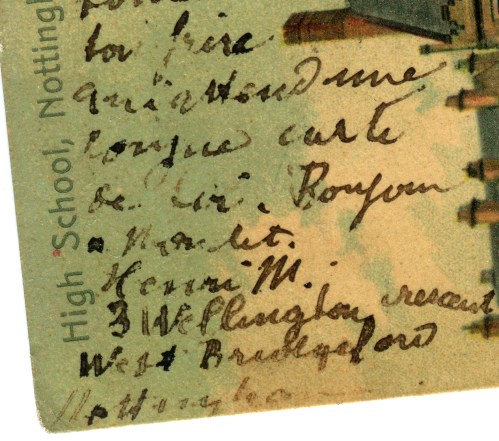 ton frère
qui attend une
longue carte
de toi. Bonjour
a
Henri M.
3 Wellington crescent
West Bridgeford
Nottingham
High School, Notting